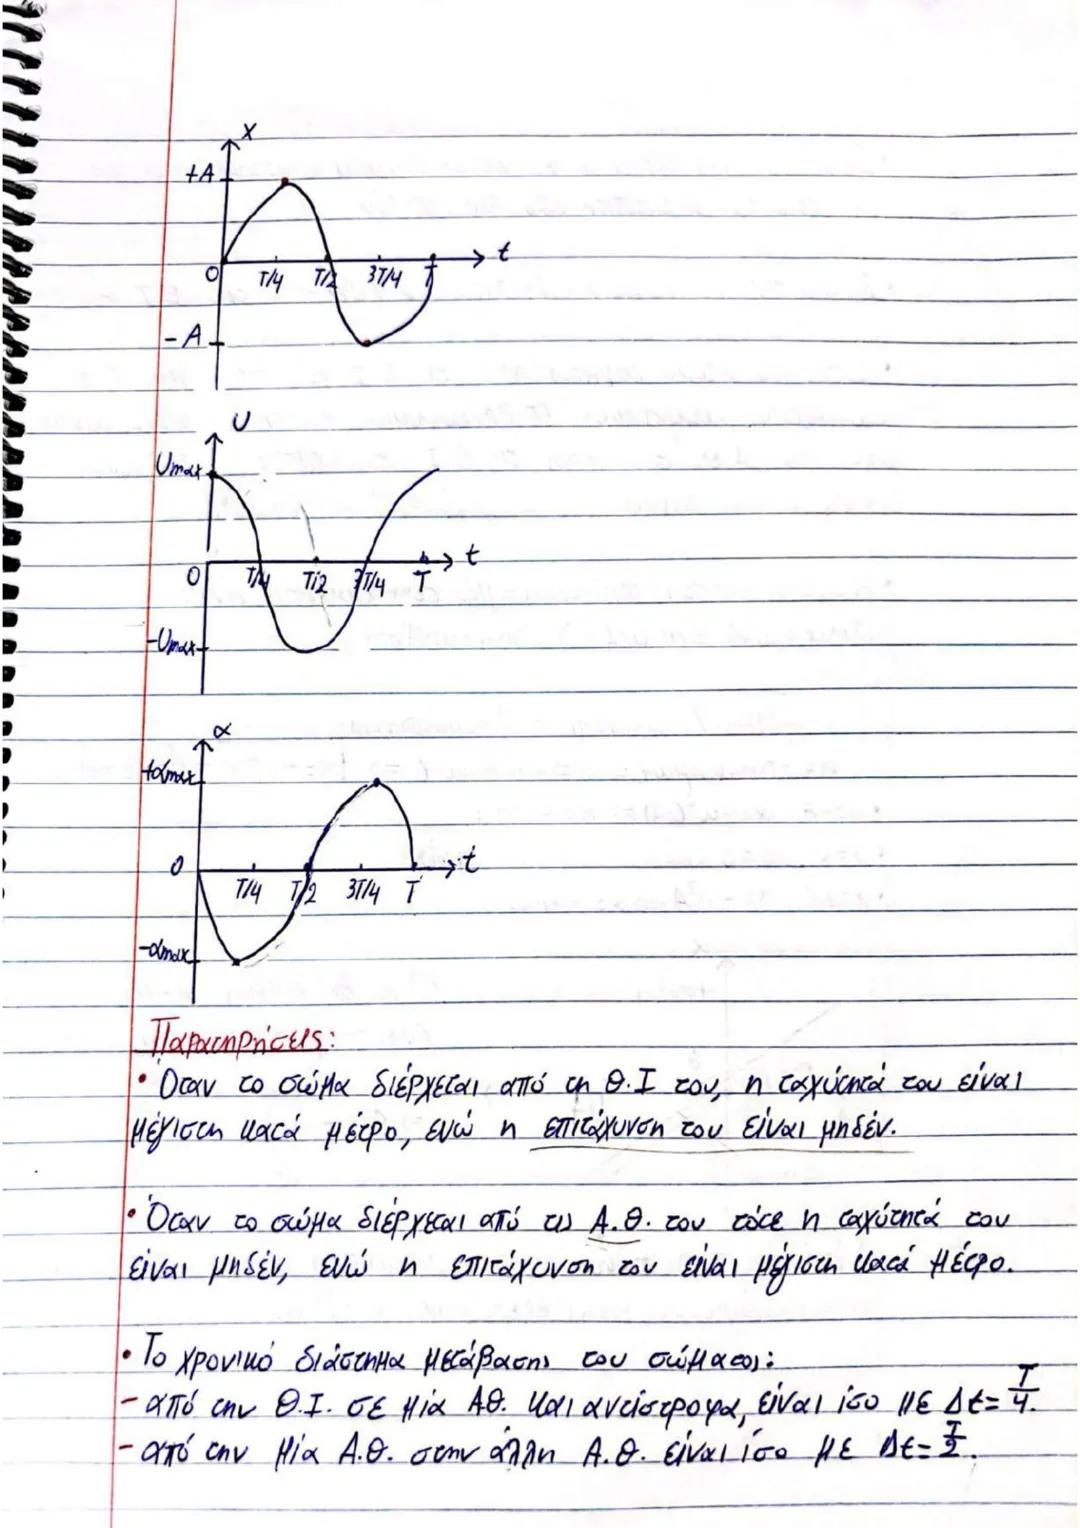 x
+A
0 T/4 T/2 3T/4 T t
-A
U
Umax
0 T/4 T/2 3T/4 T t
-Umax
α
+αmax
0 T/4 T/2 3T/4 T t
-αmax
Παρατηρήσεις:
• Όταν το σώμα διέρχεται από τη Θ.Ι του, η ταχύτητά του είναι
μέγιστη κατά μέτρο, ενώ η επιτάχυνση του είναι μηδέν.
• Όταν το σώμα διέρχεται από τις Α.Θ. του τότε η ταχύτητά του
είναι μηδέν, ενώ η επιτάχυνση του είναι μέγιστη κατά μέτρο.
• Το χρονικό διάστημα μετάβασης του σώματος:
- από την Θ.Ι. σε μία ΑΘ. και αντίστροφα, είναι ίσο με Δt= T/4.
- από την μία Α.Θ. στην άλλη Α.Θ. είναι ίσο με Δt= T/2.